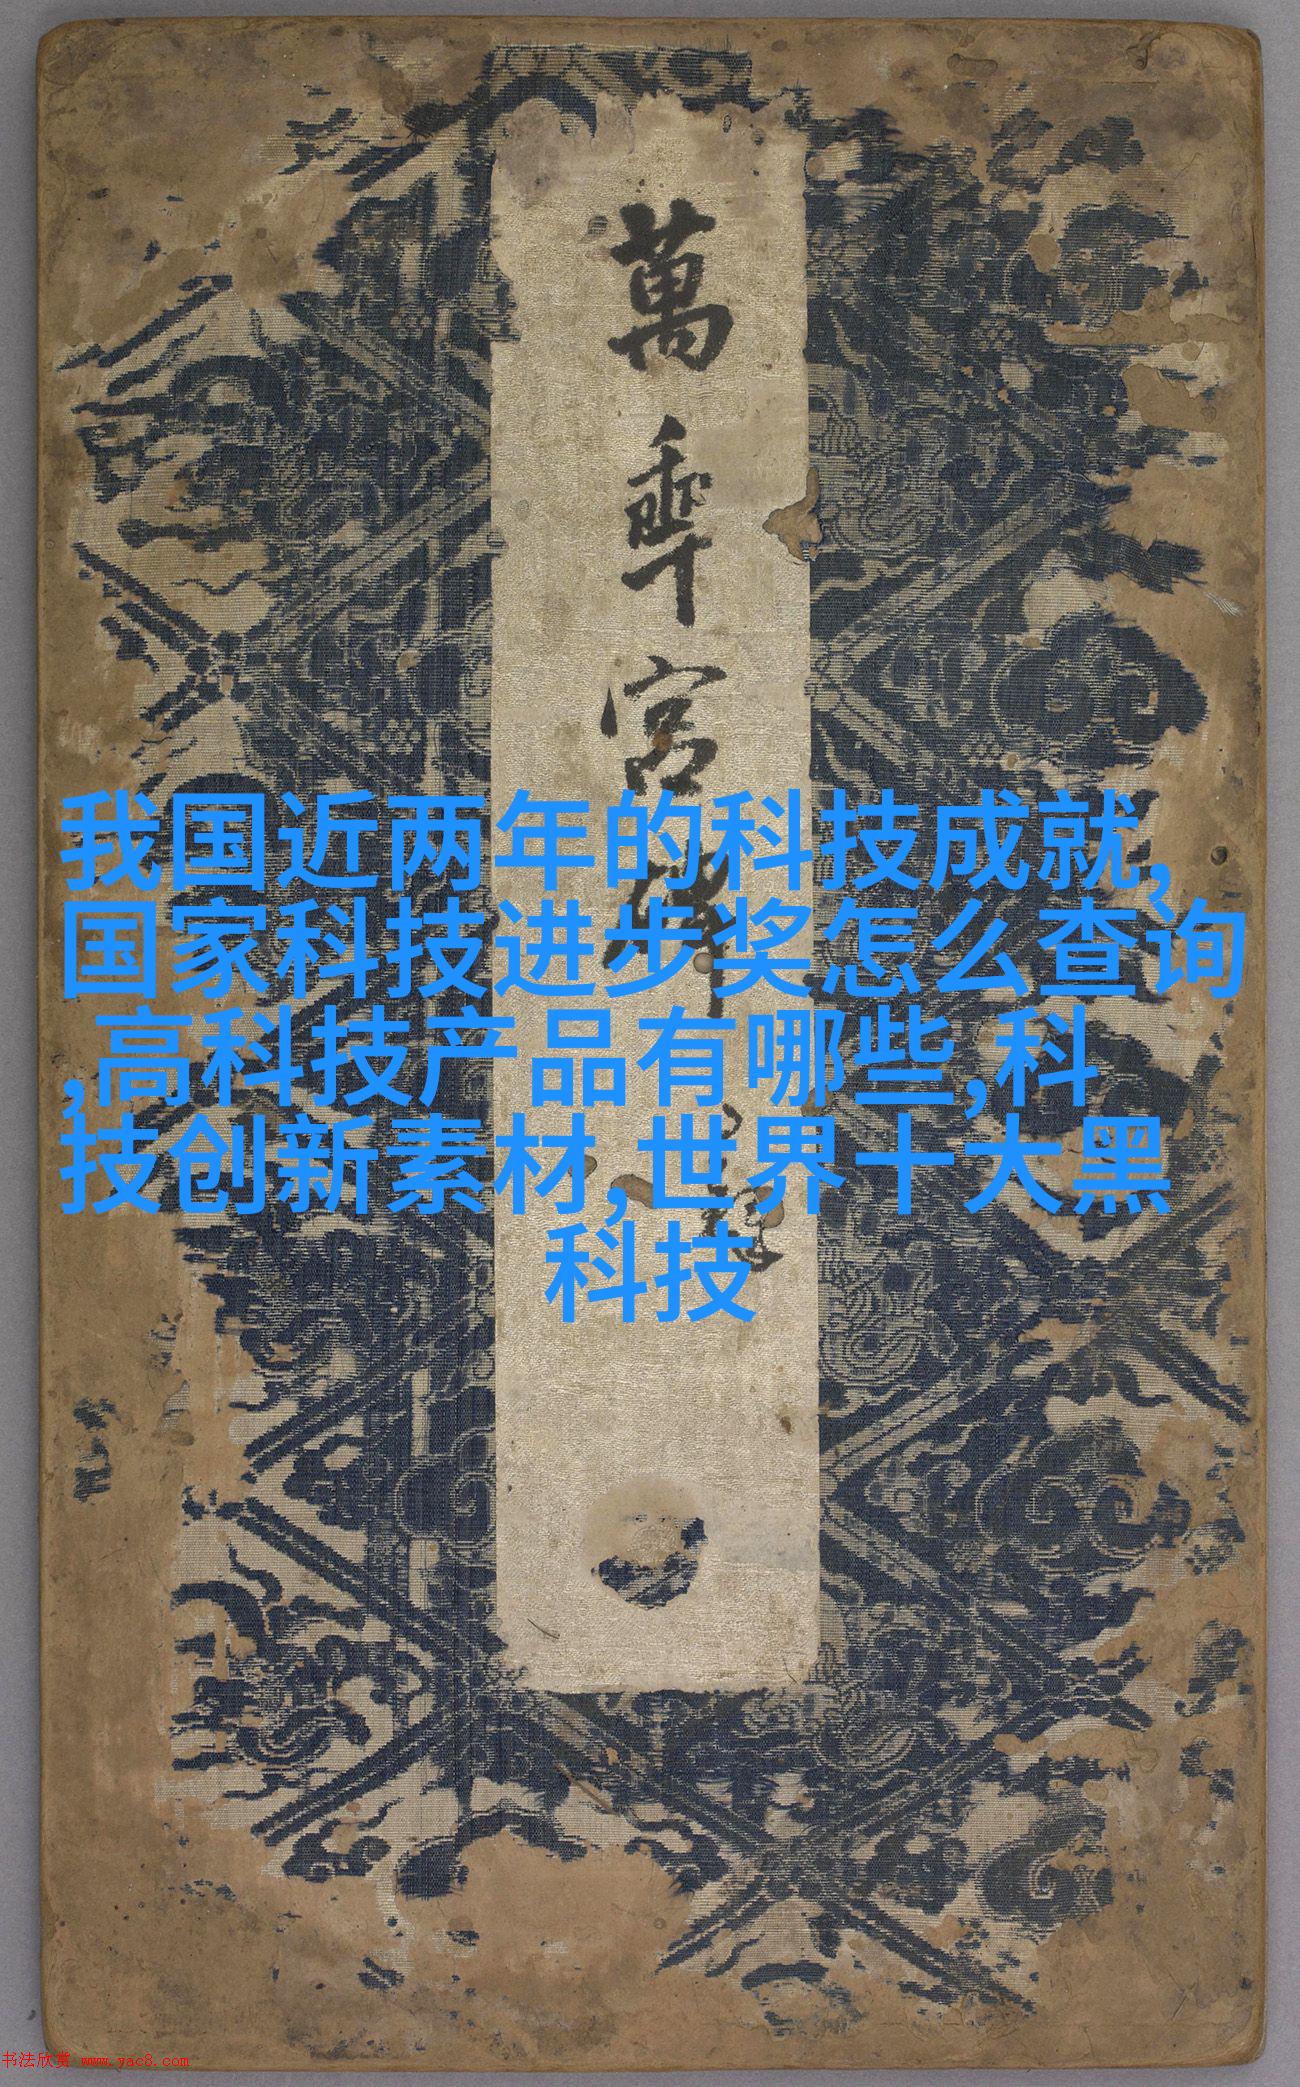 萬
年
宮
碑
我国近两年的科技成就,
国家科技进步奖怎么查询
,高科技产品有哪些,科
技创新素材,世界十大黑
科技
书法欣赏 www.yac8.com